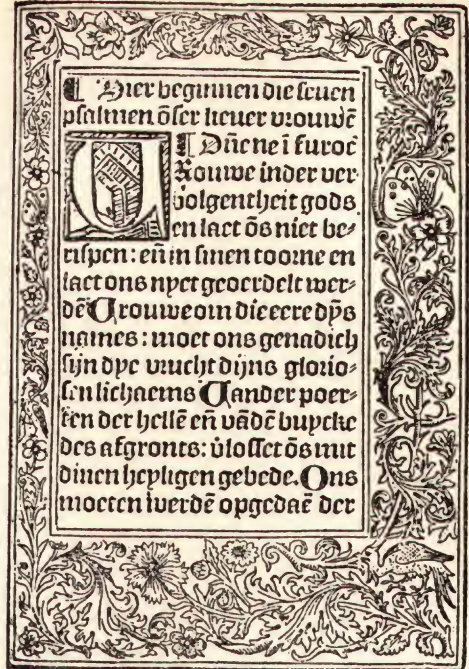 ¶ Hier beginnen die seuen
psalmen ōser lieuer vrouwē
¶ Dn̄e ne ī furoē
VRouwe in der ver-
bolgentheit gods
en laet ōs niet be-
rispen: eñ in sinen toorne en
laet ons nyet geoerdelt wer-
dē Vrouwe om die eere dijs
names: moet ons genadich
sijn dye vrucht dijns glorio-
sen lichaems Vander poer-
ten der hellē eñ vādē buycke
des afgronts: v̄losset ōs mit
dinen heyligen gebede. Ons
moeten werdē opgedaē der